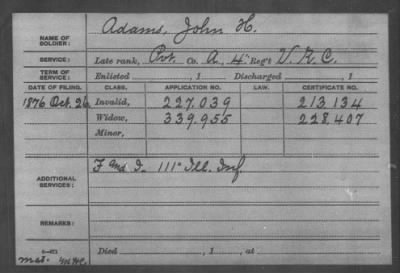 NAME OF SOLDIER: Adams, John H.
SERVICE: Late rank, Pvt. Co. A, 4" Reg't V. R. C.
TERM OF SERVICE: Enlisted , 1 Discharged , 1
DATE OF FILING. CLASS. APPLICATION NO. LAW. CERTIFICATE NO.
1876 Oct. 26 Invalid, 227.039 213.134
Widow, 339.955 228.407
Minor,
ADDITIONAL SERVICES: F and I 111" Ill. Inf.
REMARKS:
Died , 1 , at